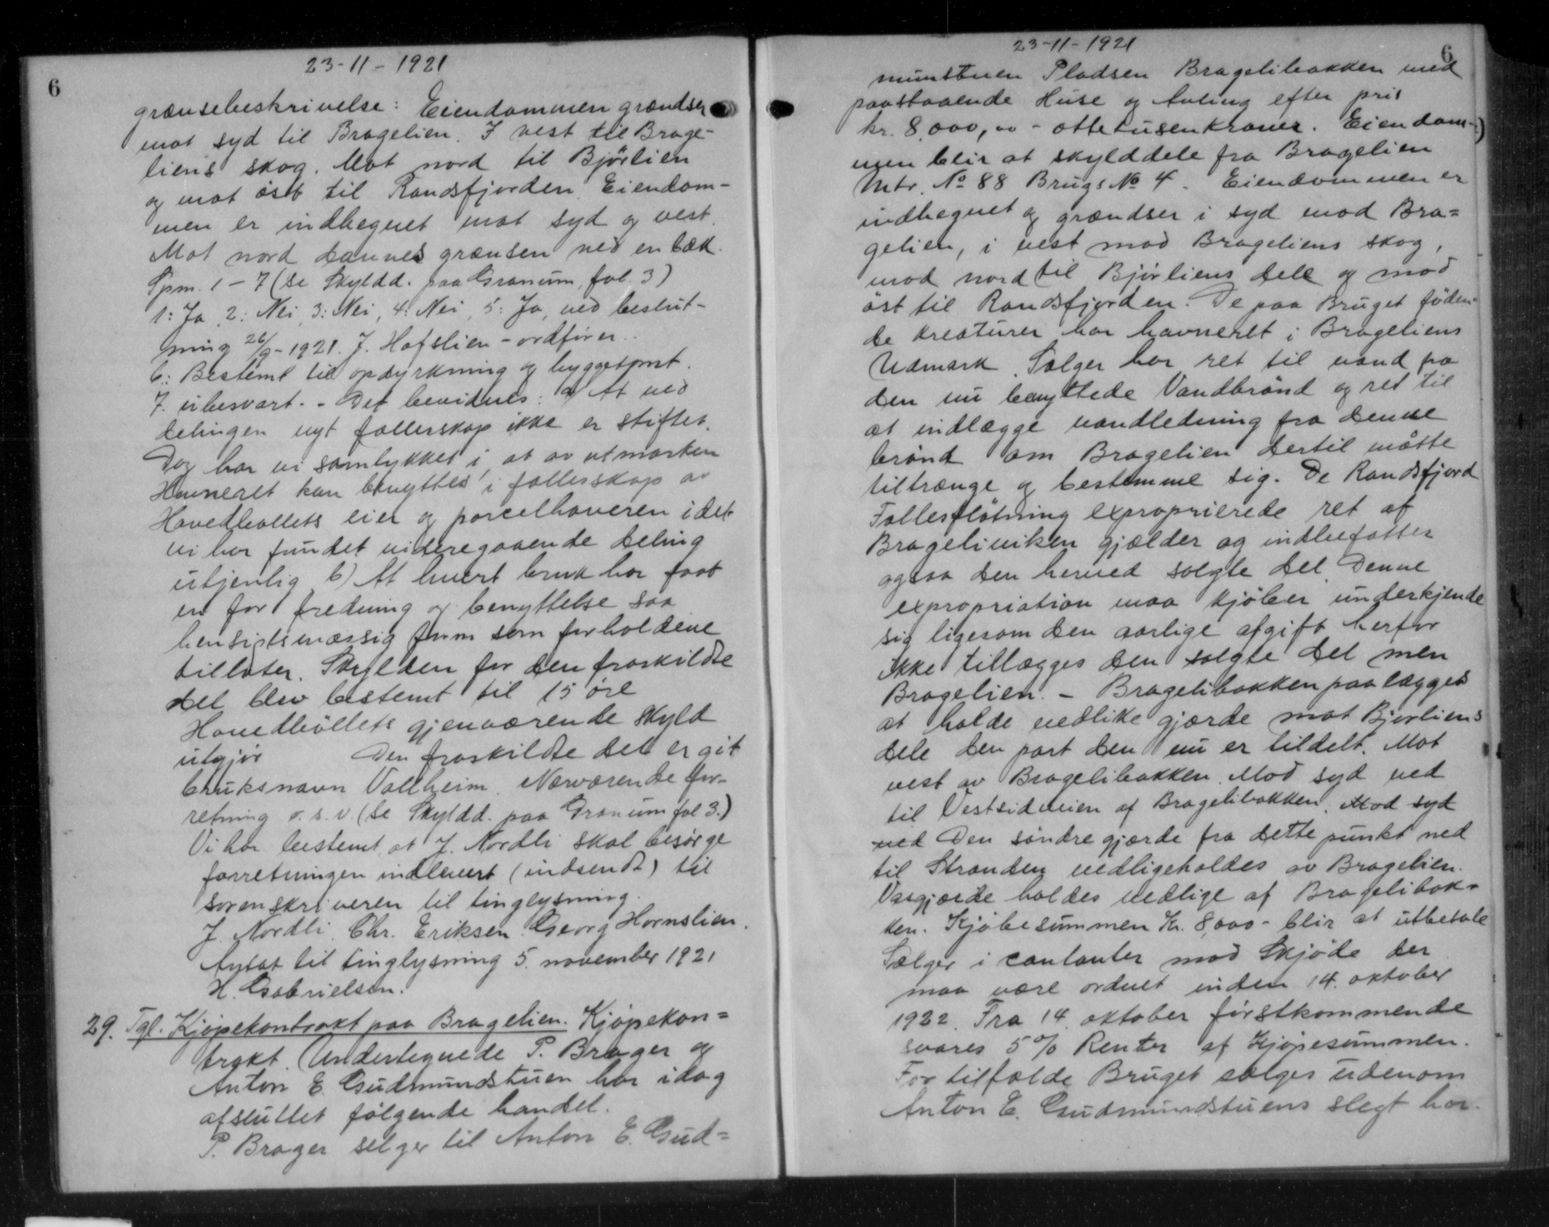 6
23-11-1921
grænsebeskrivelse: Eiendommen grændser
mot syd til Bragelien. I vest til Brage-
liens skog. Mot nord til Bjørlien
og mot öst til Randsfjorden. Eiendom-
men er indhegnet mot syd og vest.
Mot nord dannes grænsen ved en bæk.
Spm. 1-7 (se Skyldd. paa Granum, fol. 3)
1: Ja, 2: Nei, 3: Nei, 4: Nei, 5: Ja, ved beslut-
ning 26/9-1921. J. Hofslien - ordfører.
6: Bestemt til opdyrkning og byggetomt.
7. ubesvart. - Det bevidnes: a) At ved
delingen nyt fællesskap ikke er stiftet.
Dog har vi samtykket i, at av utmarken
Havneret kan benyttes i fællesskap av
Hovedbøllets eier og parcelhaveren idet
vi har fundet videregaaende deling
utjenlig. b) At hvert bruk har faat
en for fredning og benyttelse saa
hensigtsmæssig form som forholdene
tillater. Skylden for den fraskildte
del blev bestemt til 15 öre
Hovedböllets gjenværende skyld
utgjör Den fraskildte del er git
bruksnavn Vallheim. Nærværende for-
retning o.s.v. (se Skyldd. paa Granum fol 3.)
Vi har bestemt at J. Nordli skal besørge
forretningen indlevert (indsendt) til
sorenskriveren til tinglysning.
J. Nordli. Chr. Eriksen. Georg Hornslien.
Antat til tinglysning 5. november 1921
H. Gabrielsen.
29. Tgl. Kjøpekontrakt paa Bragelien. Kjøpekon=
trakt. Undertegnede P. Brager og
Anton E. Gudmundstuen har idag
afsluttet følgende handel.
P. Brager selger til Anton E. Gud=
23-11-1921
6
munstuen Pladsen Bragelibakken med
paastaaende Huse og Avling efter pris
kr. 8,000,00 - ottetusenkroner. Eiendom-
men blir at skylddele fra Bragelien
Mtr. No 88 Brugs No 4. Eiendommen er
indhegnet og grændser i syd mod Bra=
gelien, i vest mod Brageliens skog,
mod nord til Bjørliens dele og mod
öst til Randsfjorden. De paa Bruget föden-
de kreaturer har havneret i Brageliens
Udmark. Sælger har ret til vand fra
den nu benyttede Vandbrønd og ret til
at indlægge vandledning fra denne
brønd om Bragelien dertil måtte
tiltrænge og bestemme sig. De Randsfjord
Fællesfløtning exproprierede ret af
Brageliviken gjælder og indbefatter
ogsaa den herved solgte del. Denne
expropriation maa kjøber underkjende
sig ligesom den aarlige afgift herfor
ikke tillægges den solgte del men
Bragelien. - Bragelibakken paalægges
at holde vedlike gjærde mot Bjørliens
dele den part den nu er tildelt. Mot
vest av Bragelibakken. Mod syd ved
til Vestsideveien af Bragelibakken. Mod syd
ved Den söndre gjærde fra dette punkt ned
til Stranden vedligeholdes av Bragelien.
Vasgjærde holdes vedlige af Bragelibak=
ken. Kjøbesummen Kr. 8,000- blir at utbetale
Sælger i contanter mod Skjøde der
maa være ordnet inden 14. oktober
1922. Fra 14. oktober førstkommende
svares 5% Renter af Kjøpesummen.
For tilfælde Bruget sælges udenom
Anton E. Gudmundstuens slegt har